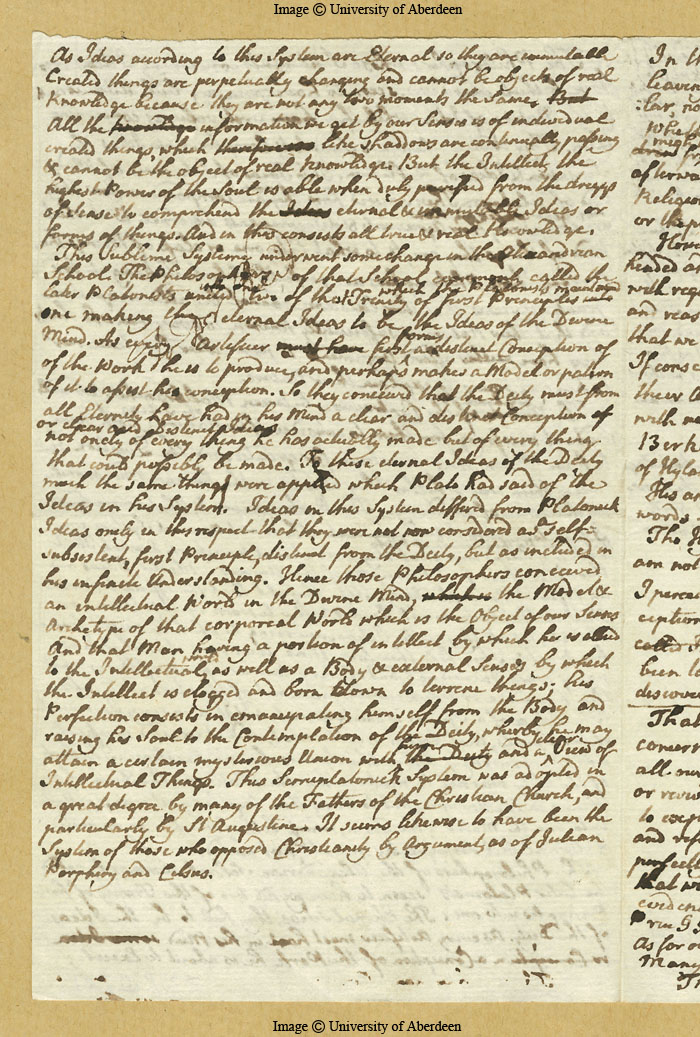 Image © University of Aberdeen
As Ideas according to this System are Eternal so they are immutable
Created things are perpetually changing and cannot be objects of real
Knowledge because they are not any two moments the same. But
All the knowledge information we get by our Senses is of individual
created things, which like shaddows are continually passing
& cannot be the object of real Knowledge. But the Intellect, the
highest Power of the Soul is able when duly purified from the dreggs
of sense to comprehend the Ideas eternal & immutable Ideas or
forms of things. And in this consists all true & real Knowledge.
This Sublime System underwent some change in the Alexandrian
School. The Philosophers of that School commonly called the
later Platonists of that Trinity of first Principles into
which the Platonists maintaind
one making the eternal Ideas to be the Ideas of the Divine
Mind. As every Artificer must have first forms a distinct Conception of
of the Work he is to produce, and perhaps makes a Model or patern
of it to assist his conception. So they conceived that the Deity must from
all Eternity have had in his Mind a clear and distinct Conception of
or clear and distinct Ideas
not onely of every thing he has actually made but of every thing
that could possibly be made. To these eternal Ideas of the Deity
much the same things were applied which Plato had said of the
Ideas in his System. Ideas in this System differd from Platonick
Ideas onely in this respect that they were not now considered as a self-
subsistent, first Principle, distinct from the Deity, but as included in
his infinite Understanding. Hence those Philosophers conceived
an intellectual World in the Divine Mind, the Model &
Archetype of that corporeal World which is the Object of our Senses
And that Man having a portion of intellect by which he is allied
to the Intellectual world, as well as a Body & external Senses by which
the Intellect is clogged and born down to terrene things; his
Perfection consists in emancipating himself from the Body and
raising his Soul to the Contemplation of the Deity, whereby he may
attain a certain mysterious Union with him the Deity and a clear View of
Intellectual Things. This Semiplatonick System was adopted in
a great degree by many of the Fathers of the Christian Church, and
particularly by St Augustine. It seems likewise to have been the
System of those who opposed Christianity by Argument, as of Julian
Porphiry and Celsus.
In th
leavin
lar, no
might
afterwa
Religion
or the p
How
headed a
with rega
and reas
that we
If consc
their a
with m
Berk
of Hyla
His ar
words
The
am not
I percei
ception
called
been l
discover
That
concern
all our
or revie
to exp
and ref
perfectl
that w
eviden
As for ou
Many
Th
Image © University of Aberdeen